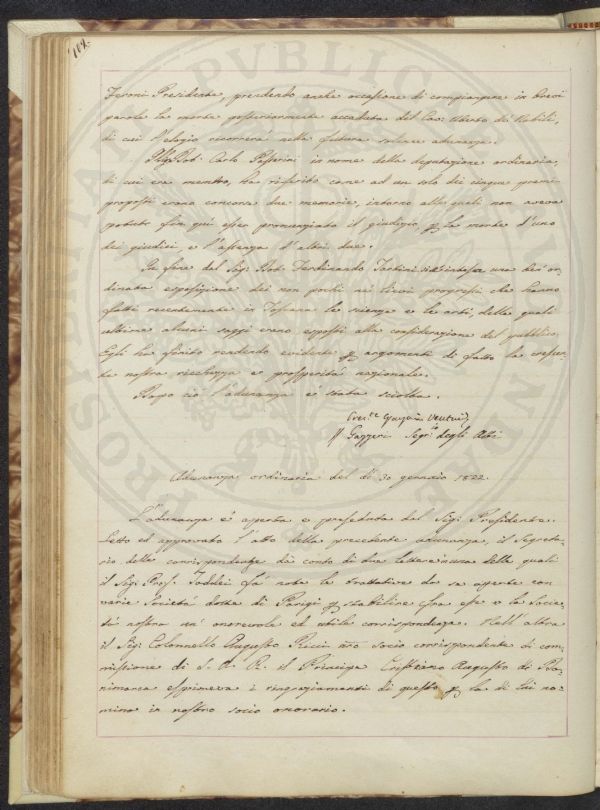 104.
Feroni Presidente, prendendo anche occasione di compiangere in brevi
parole la morte posteriormente accaduta del Cav. Alberto de Nobili,
di cui l'elogio ricorrerà nella futura solenne adunanza.
Il Sig. Dot. Carlo Passerini in nome della deputazione ordinaria,
di cui era membro, ha riferito come ad un solo dei cinque premi
proposti erano concorse due memorie, intorno alle quali non aveva
potuto fin qui esser pronunziato il giudizio per la morte d'uno
dei giudici e l'assenza d'altri due.
In fine del Sig. Dot. Ferdinando Tartini si è intesa una ben or-
dinata esposizione dei non pochi nè lievi progressi che hanno
fatti recentemente in Toscana le scienze e le arti, delle quali
ultime alcuni saggi erano esposti alla considerazione del pubblico.
Egli ha finito rendendo evidente per argomenti di fatto la crescen-
te nostra ricchezza e prosperità nazionale.
Dopo ciò l'adunanza è stata sciolta.
Gazzeri Segr.io degli Atti
Adunanza ordinaria del dì 30 gennaio 1822.
L'adunanza è aperta e preseduta dal Sig. Presidente.
Letto ed approvato l'atto della precedente adunanza, il Segreta-
rio delle corrispondenze dà conto di due lettere in una delle quali
il Sig. Prof. Taddei fa note le trattative da se aperte con
varie Società dotte di Parigi per stabilire fra esse e la Socie-
tà nostra un'onorevole ed utile corrispondenza. Nell'altra
il Sig. Colonnello Augusto Ricci nro socio corrispondente di com-
missione di S. A. R. il Principe Cristiano Augusto di Da-
nimarca esprimeva i ringraziamenti di questo per la di lui no-
mina in nostro socio onorario.